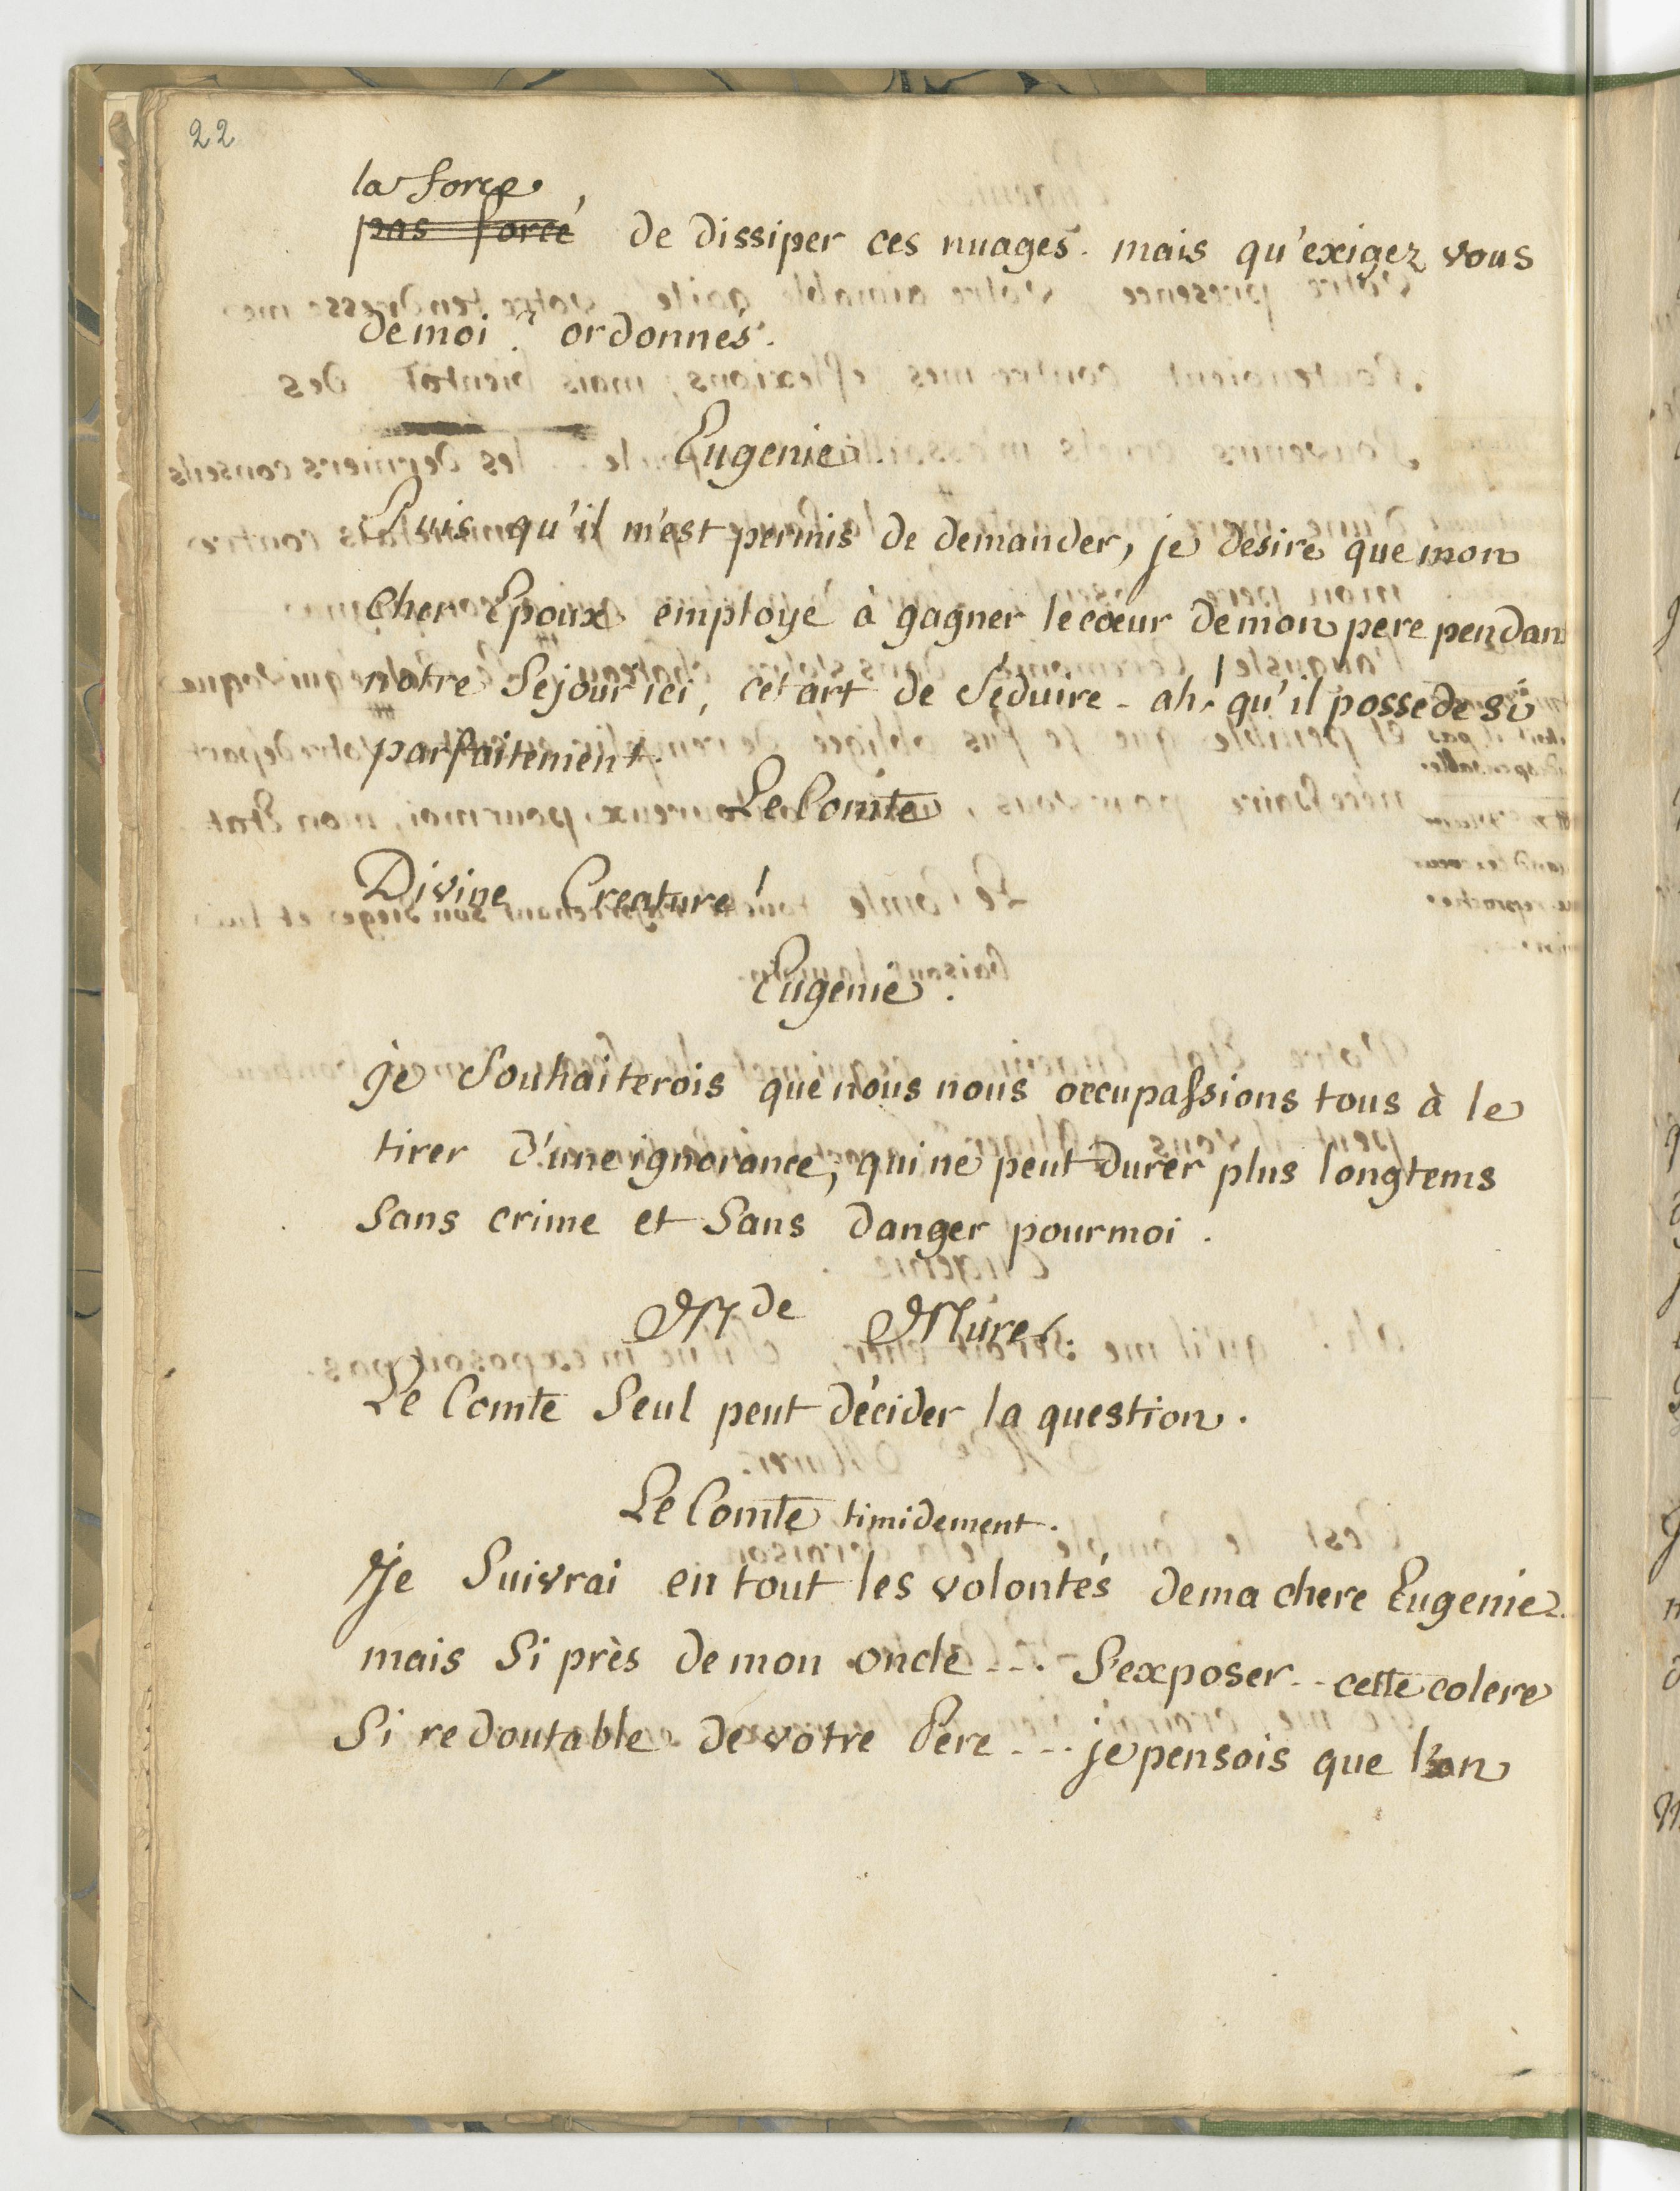 22
la force
pas forcé de dissiper ces nuages. mais qu'exigez vous
de moi ? ordonnés.
Eugenie.
Puis qu'il m'est permis de demander, je desire que mon
Cher Epoux employé à gagner le cœur de mon pere pendan
notre Sejour ici, cet art de Séduire - ah! qu'il possede si
parfaitement.
Le Comte
Divine Creature!
Eugenie.
je Souhaiterois que nous nous occupassions tous à le
tirer d'une ignorance, qui ne peut durer plus longtems
Sans crime et Sans danger pour moi.
Mde Murer.
Le Comte Seul peut décider la question.
Le Comte timidement.
Je Suivrai en tout les volontés de ma chere Eugenie.
mais Si près de mon oncle --. S'exposer -- cette colere
Si redoutable de votre Pere --. je pensois que l'on